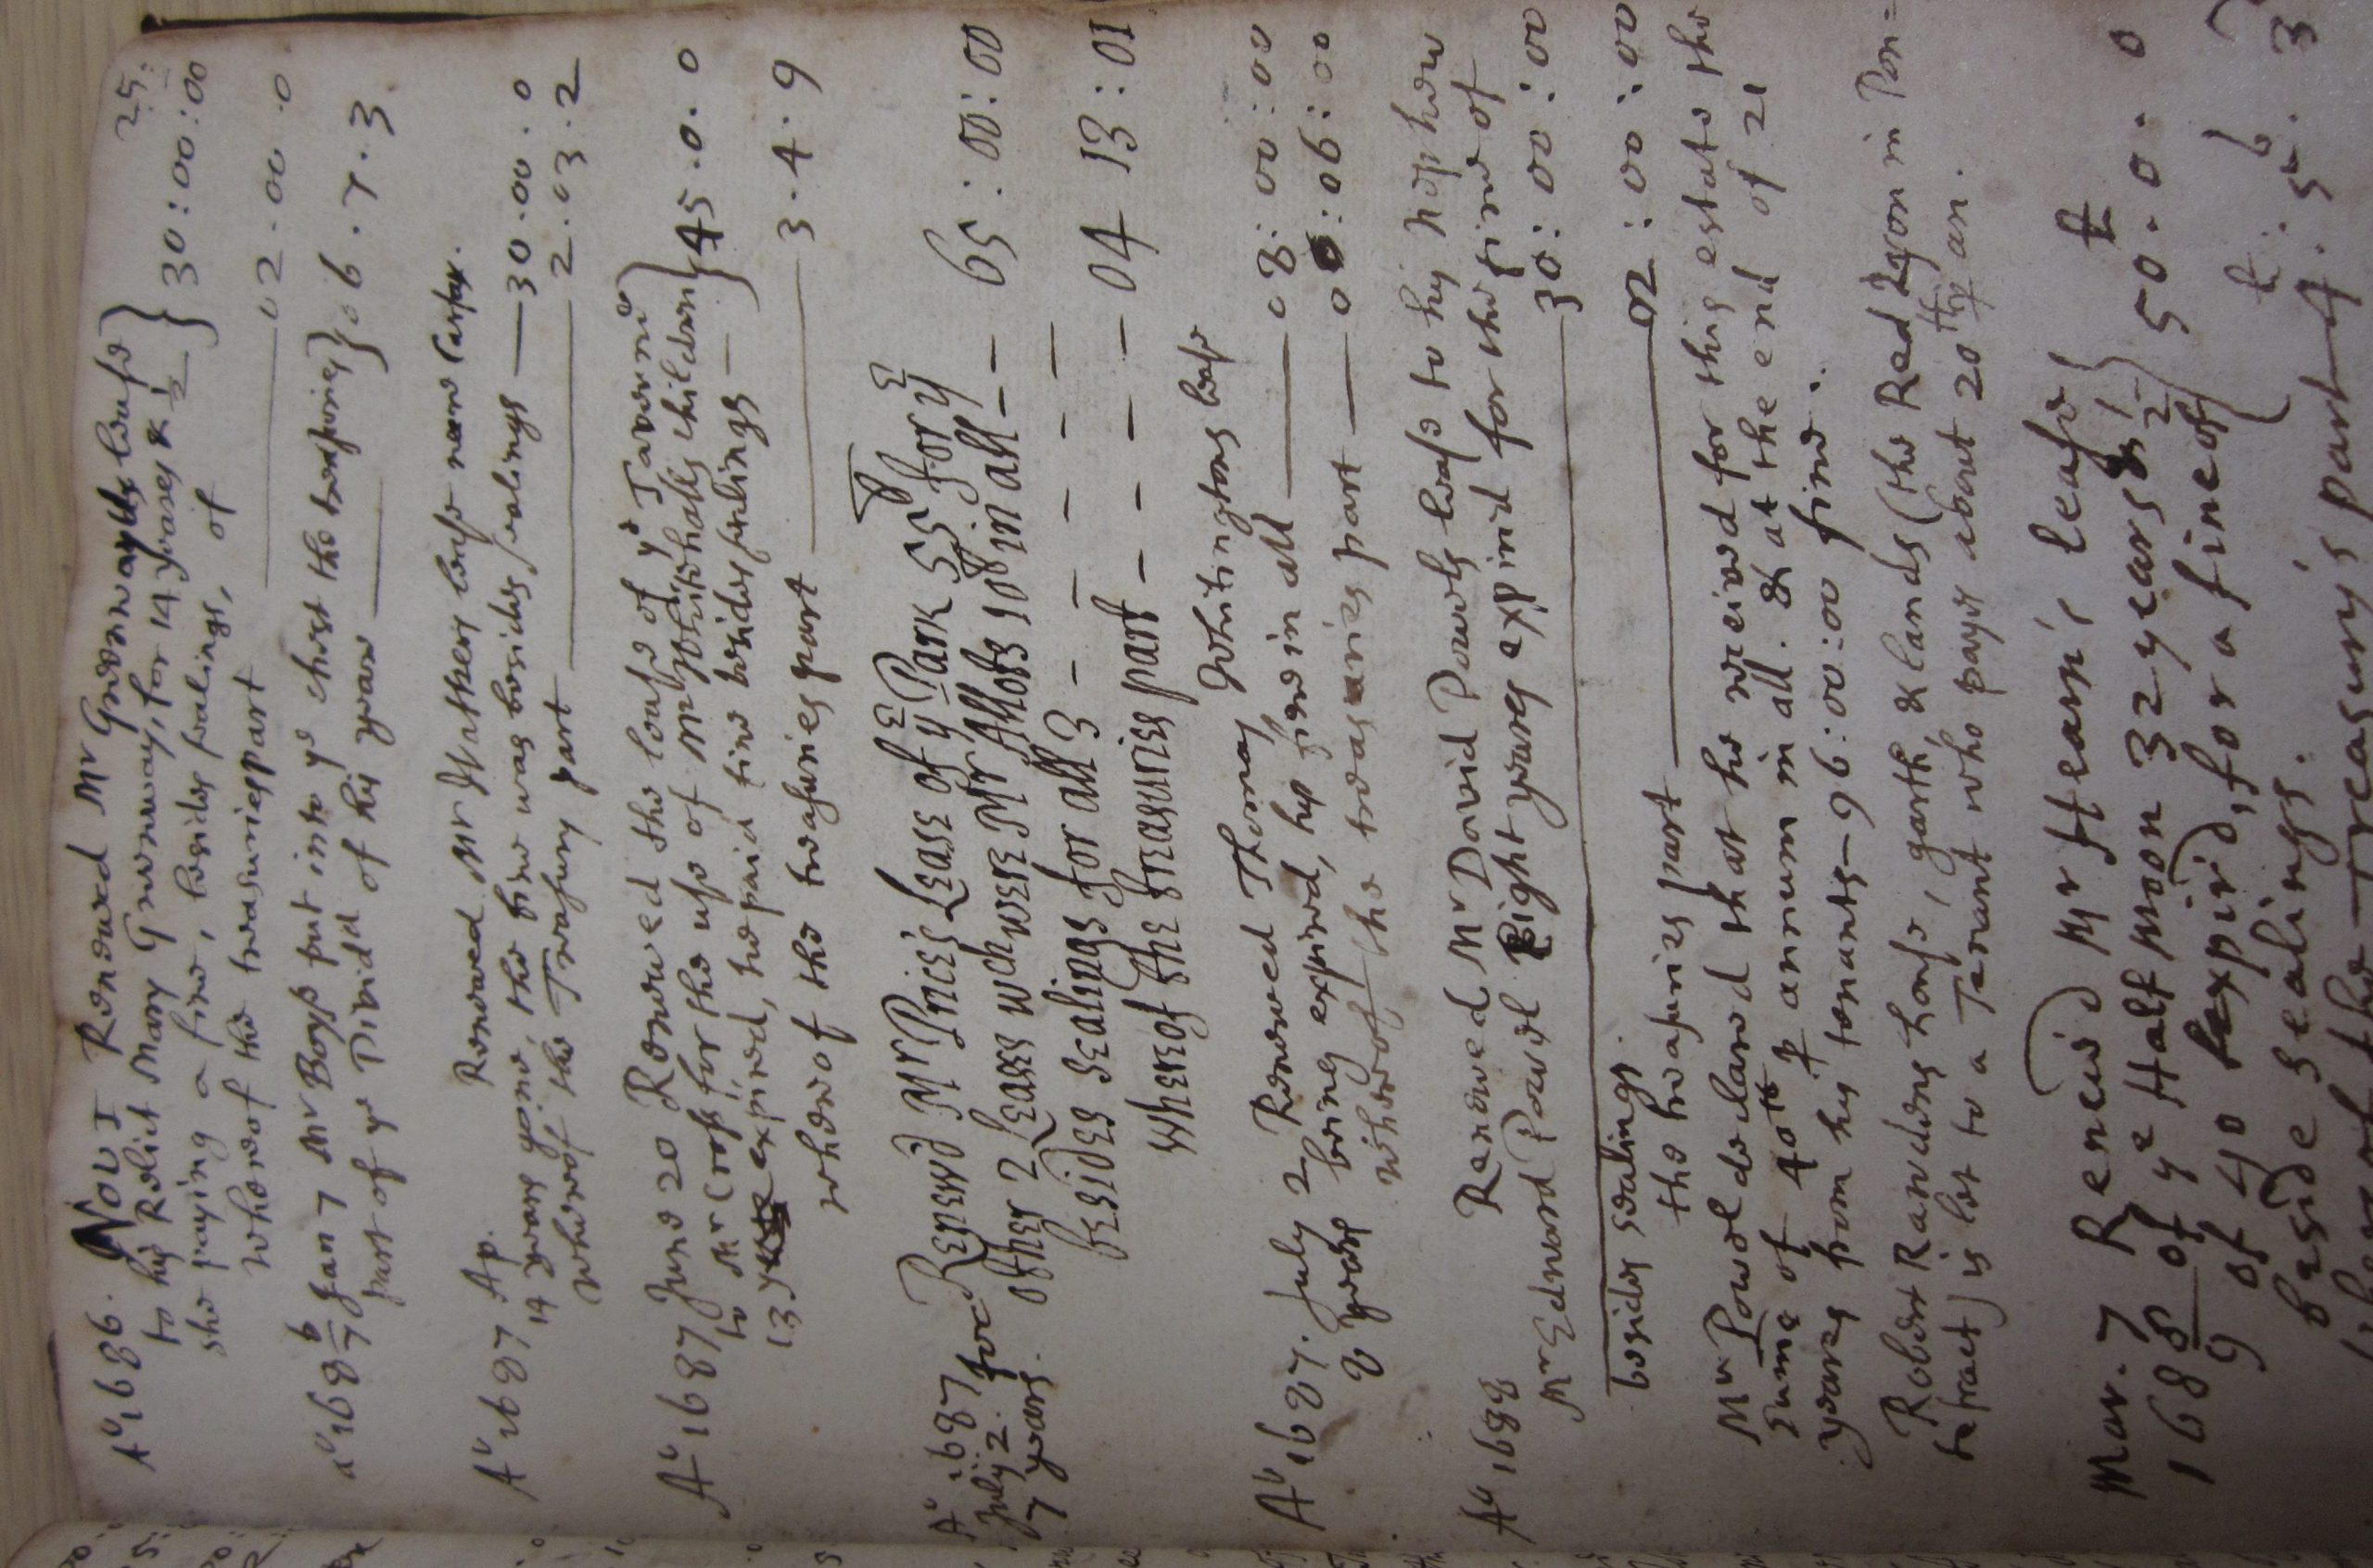 25.
Ao 1686. Nov 1 Renewed Mr Greenwayes lease
to his Relict Mary Greenway, for 14 yeares & 1/2 } 30:00:00
she paying a fine, besides sealings, of
whereof the treasuries part 02.00.0
ao 168 6/7 Jan 7 Mr Boys put into ye chest the treasuries } 06.7.3
part of ye Dividd of his year
Ao 1687 Ap. Renewed Mr lease near Carfax.
14 years gone, the fine was besides sealings 30.00.0
whereof the Treasury part 2.03.2
Ao 1687 June 20 Renewed the lease of ye Taverne
to Mr Cross for the use of Mr children } 45.0.0
13 expired, he paid fine besides sealings
whereof the treasuries part 3.4.9
Ao 1687 July 2. for 7 years. Renewd Mr Price's Lease of ye Park 55 for ye
other 2 Leases wch were Mr Allots 10 in all - 65:00:00
besides sealings for all 3 - - - -
whereof the treasuries part - - - - 04 13:01
Ao 1687. July 2 Renewed Thomas Whitingtons lease
8 yeares being expired, his fine in all 08:00:00
whereof the treasuries part 00:06:00
Ao 1688 Renewed Mr David Powels lease to his nephew
Mr Edward Powel Eight yeares expired for the fine of
30:00:00
besides sealings.
the treasuries part 02:00:00
Mr Powel declared that he received for this estate the
summe of 40 p annum in all. & at the end of 21
yeares from his tenants - 96:00:00 fine.
Robert Rawdens house, garth, & lands (the Red Lyon in Pon=
tefract) is let to a Tenant who payes about 20 p an.
Mar. 7 Renew'd Mr Hearn's lease
168 8/9 of ye Half Moon 32 years & 1/2 } 50.0.0
of 40 expir'd, for a fine of
beside sealings.
whereof the Treasury's part 4.5.3